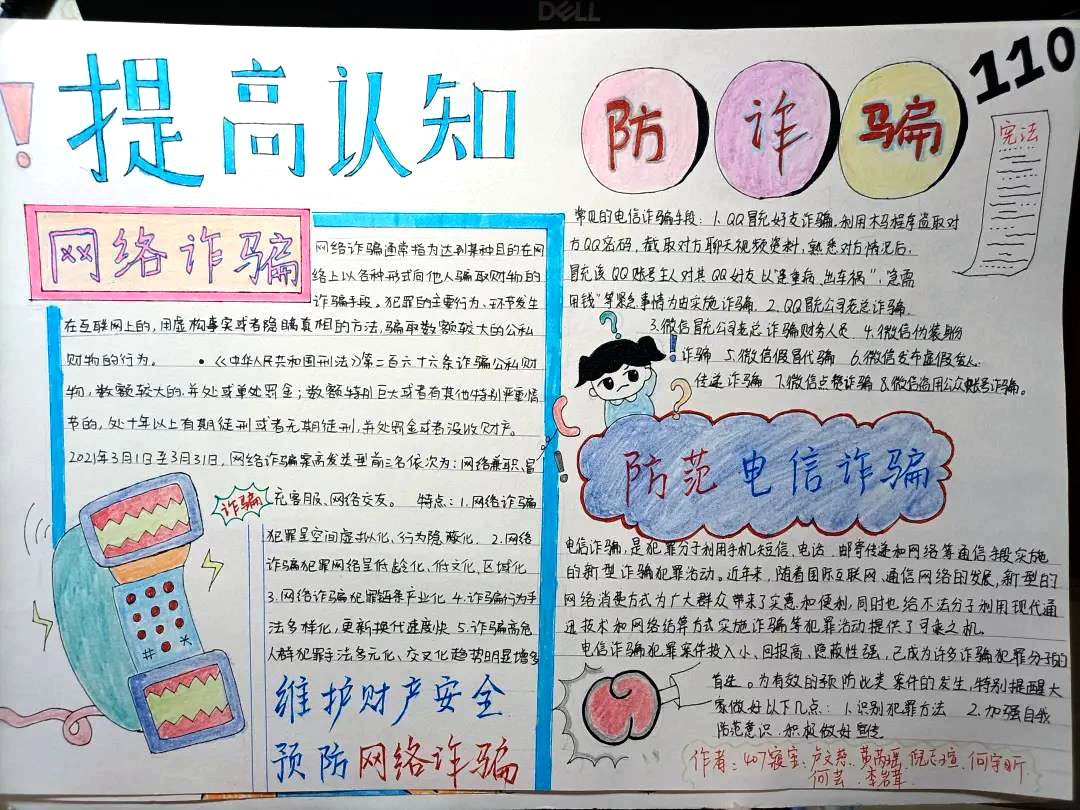 DELL
提高认知
防诈骗
110
宪法
网络诈骗
网络诈骗通常指为达到某种目的在网
络上以各种形式向他人骗取财物的
诈骗手段。犯罪的主要行为、环节发生
在互联网上的,用虚构事实或者隐瞒真相的方法,骗取数额较大的公私
财物的行为。 •《中华人民共和国刑法》第二百六十六条诈骗公私财
物,数额较大的,并处或单处罚金;数额特别巨大或者有其他特别严重情
节的,处十年以上有期徒刑或者无期徒刑,并处罚金或者没收财产。
2021年3月1日至3月31日,网络诈骗案高发类型前三名依次为:网络兼职、冒
诈骗
充客服、网络交友。 特点:1.网络诈骗
犯罪呈空间虚拟化、行为隐蔽化。 2.网络
诈骗犯罪网络呈低龄化、低文化、区域化
3.网络诈骗犯罪链条产业化 4.诈骗行为手
法多样化,更新换代速度快 5.诈骗高危
人群犯罪手法多元化、交叉化趋势明显增多
维护财产安全
预防网络诈骗
常见的电信诈骗手段:1.QQ冒充好友诈骗,利用木马程序盗取对
方QQ密码,截取对方聊天视频资料,熟悉对方情况后,
冒充该QQ账号主人对其QQ好友以"患重病、出车祸","急需
用钱"等紧急事情为由实施诈骗。 2.QQ冒充公司老总诈骗
3.微信冒充公司老总诈骗财务人员 4.微信伪装身份
诈骗 5.微信假冒代骗 6.微信发布虚假爱心
传递诈骗 7.微信点赞诈骗 8.微信盗用公众账号诈骗。
防范电信诈骗
电信诈骗,是犯罪分子利用手机短信、电话、邮寄传递和网络等通信手段实施
的新型诈骗犯罪活动。近年来,随着国际互联网、通信网络的发展,新型的
网络消费方式为广大群众带来了实惠和便利,同时也给不法分子利用现代通
讯技术和网络结算方式实施诈骗等犯罪活动提供了可乘之机。
电信诈骗犯罪案件投入小、回报高、隐蔽性强,已成为许多诈骗犯罪分子的
首选。为有效的预防此类案件的发生,特别提醒大
家做好以下几点: 1.识别犯罪方法 2.加强自我
防范意识,积极做好宣传
作者:407寝室: